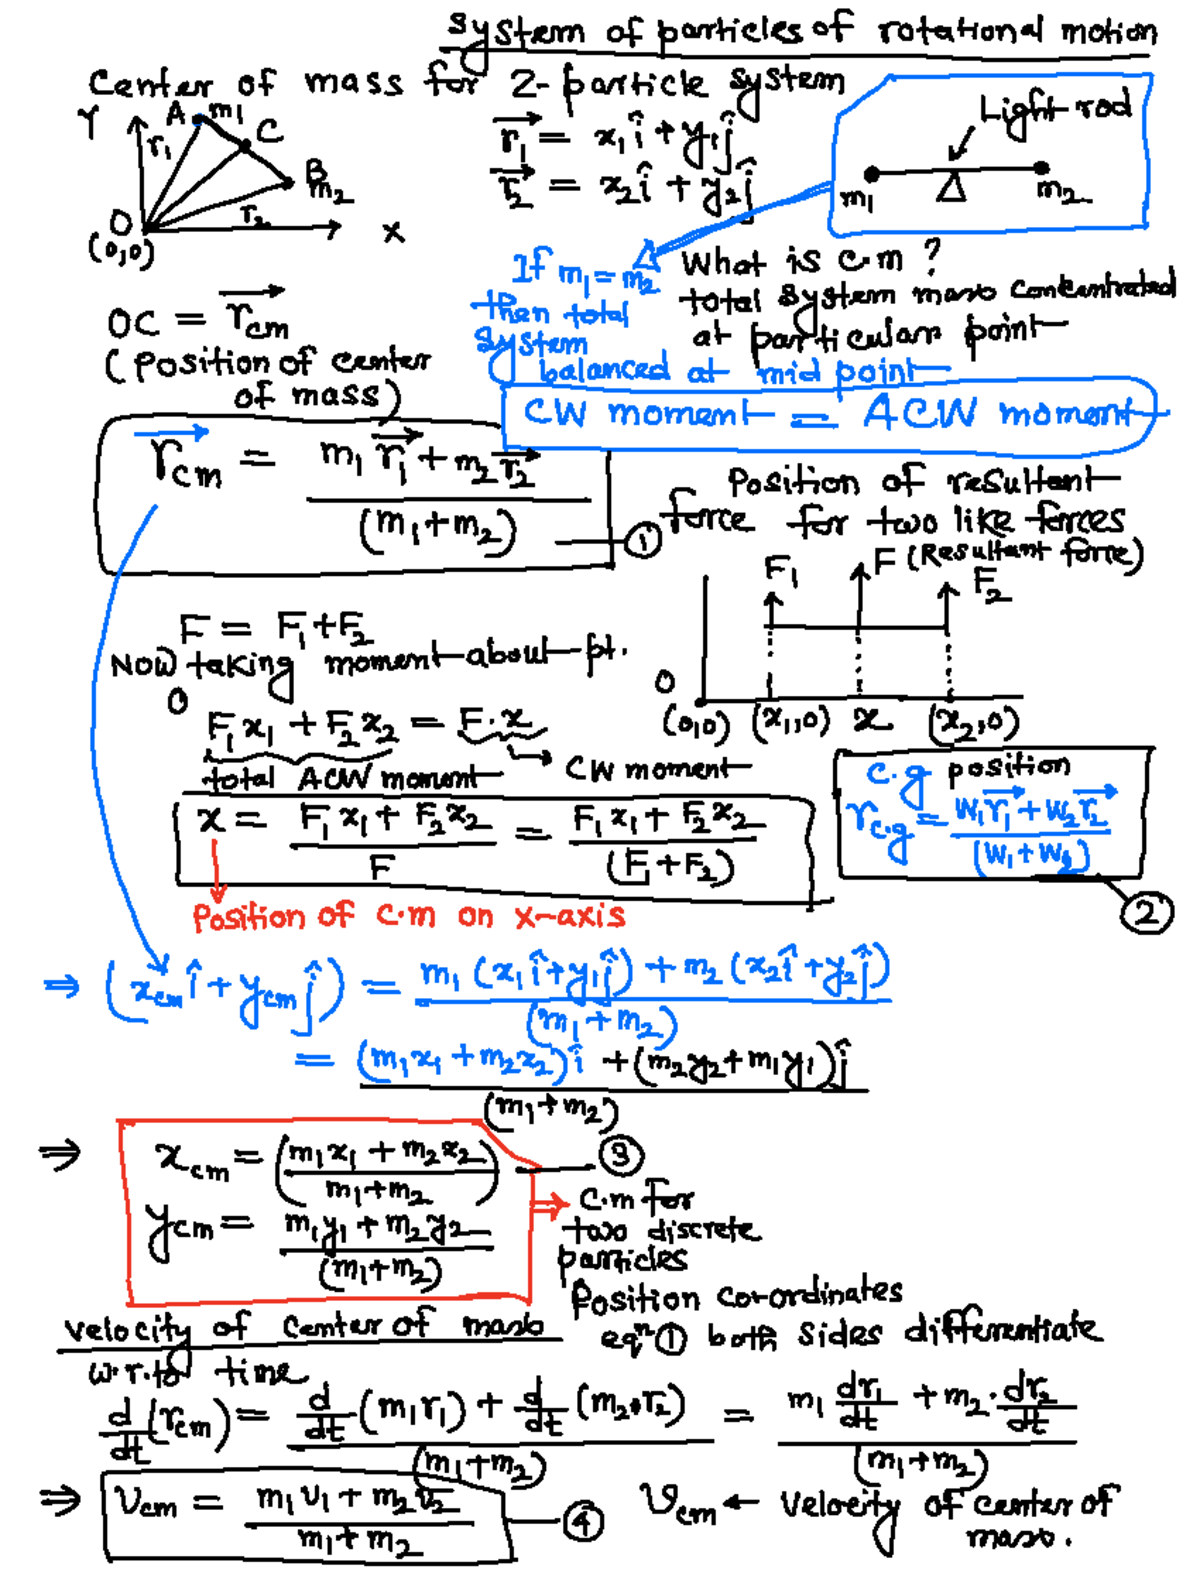 System of particles of rotational motion
Center of mass for 2-particle system
Y A m₁ C B m₂ r₁ r₂ O (0,0) X
r₁⃗ = x₁î + y₁ĵ
r₂⃗ = x₂î + y₂ĵ
Light rod
m₁ m₂
If m₁ = m₂
then total
system
balanced at mid point
What is c.m ?
total system mass concentrated
at particular point
OC = r⃗cm
(Position of center
of mass)
CW moment = ACW moment
r⃗cm = (m₁r₁⃗ + m₂r₂⃗) / (m₁+m₂) — ①
Position of resultant
force for two like forces
F₁ F (Resultant force) F₂
O
(0,0) (x₁,0) x (x₂,0)
F = F₁+F₂
Now taking moment about pt.
O
F₁x₁ + F₂x₂ = F·x
total ACW moment → CW moment
x = (F₁x₁ + F₂x₂) / F = (F₁x₁ + F₂x₂) / (F₁+F₂)
Position of c.m on x-axis
c.g position
r c.g = (W₁r₁⃗ + W₂r₂⃗) / (W₁+W₂)
②
⇒ (xcm î + ycm ĵ) = (m₁(x₁î+y₁ĵ) + m₂(x₂î+y₂ĵ)) / (m₁+m₂)
= ((m₁x₁ + m₂x₂)î + (m₂y₂+m₁y₁)ĵ) / (m₁+m₂)
⇒ xcm = ((m₁x₁ + m₂x₂) / (m₁+m₂)) — ③
ycm = (m₁y₁ + m₂y₂) / (m₁+m₂)
⇒ c.m for
two discrete
particles
Position co-ordinates
velocity of center of mass
eqⁿ ① both sides differentiate
w.r.to time
d/dt (rcm) = (d/dt (m₁r₁) + d/dt (m₂·r₂)) / (m₁+m₂) = (m₁ dr₁/dt + m₂·dr₂/dt) / (m₁+m₂)
⇒ vcm = (m₁v₁ + m₂v₂) / (m₁+m₂) — ④
vcm ← velocity of center of
mass.